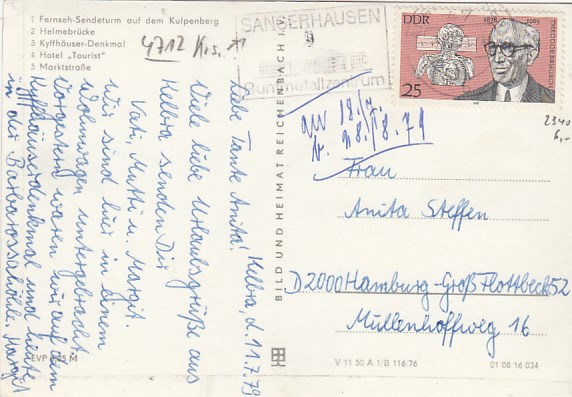 1 Fernseh-Sendeturm auf dem Kulpenberg
2 Helmebrücke
3 Kyffhäuser-Denkmal
4 Hotel „Tourist"
5 Marktstraße
4712
SANGERHAUSEN
Buntmetallzentrum
DDR
1878 1963
25
2340
6,-
Helbra, d. 11.7.79
Liebe Tante Anita!
Viele liebe Urlaubsgrüße aus
Kelbra senden Dir
Vati, Mutti u. Margit.
Wir sind hier in einem
Wohnwagen untergebracht.
Vorgestern waren wir auf dem
Kyffhäuserdenkmal und heute
in der Barbarossahöhle. Margit
BILD UND HEIMAT REICHENBACH I. V.
18./7.
28./8.79
Frau
Anita Steffen
D 2000 Hamburg-Groß Flottbeck 52
Müllenhoffweg 16
EVP 0,25 M
V 11 50 A 1/B 116/76
01 06 16 034